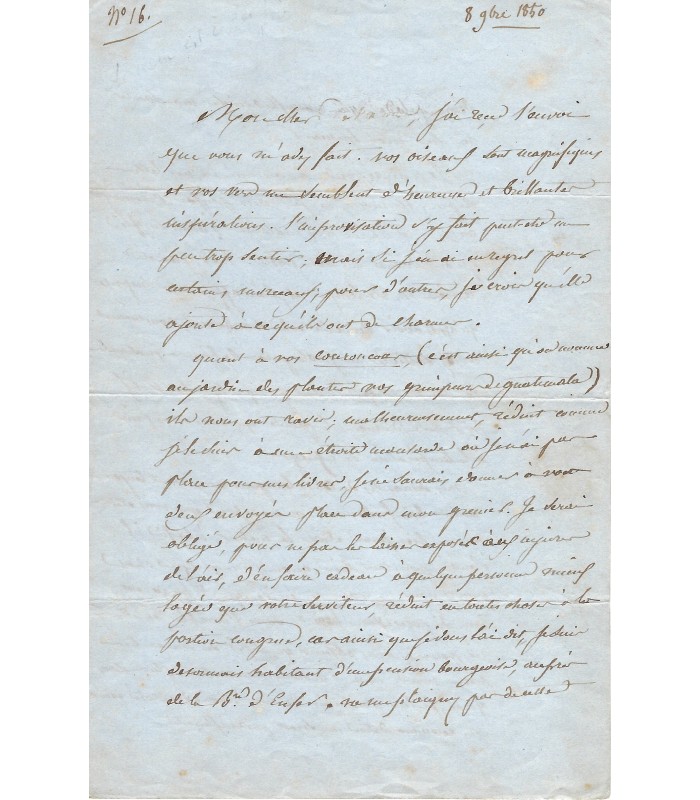 No 16.
8 9bre 1850
Mon cher, j'ai reçu l'envoi
que vous m'avez fait. vos oiseaux sont magnifiques
et vos vers me semblent d'heureuses et brillantes
inspirations. l'improvisation s'y fait peut-être un
peu trop sentir; mais si j'en ai un regret pour
certains morceaux, pour d'autres, je crois qu'elle
ajoute à ce qu'ils ont de charme.
quant à vos couroucous, (c'est ainsi qu'on nomme
au jardin des plantes vos grimpeurs de guatemala)
ils nous ont ravis; malheureusement, réduit comme
je le suis à une étroite mansarde où je n'ai pas
place pour mes livres, je ne saurais donner à vos
deux envoyés place dans mon grenier. Je serai
obligé, pour ne pas les laisser exposés aux injures
de l'air, d'en faire cadeau à quelque personne mieux
logée que votre serviteur, réduit en toutes choses à la
portion congrue, car ainsi que je vous l'ai dit, je suis
désormais habitant d'une pension bourgeoise, auprès
de la Bre d'Enfer. ne me plaignez pas de cette